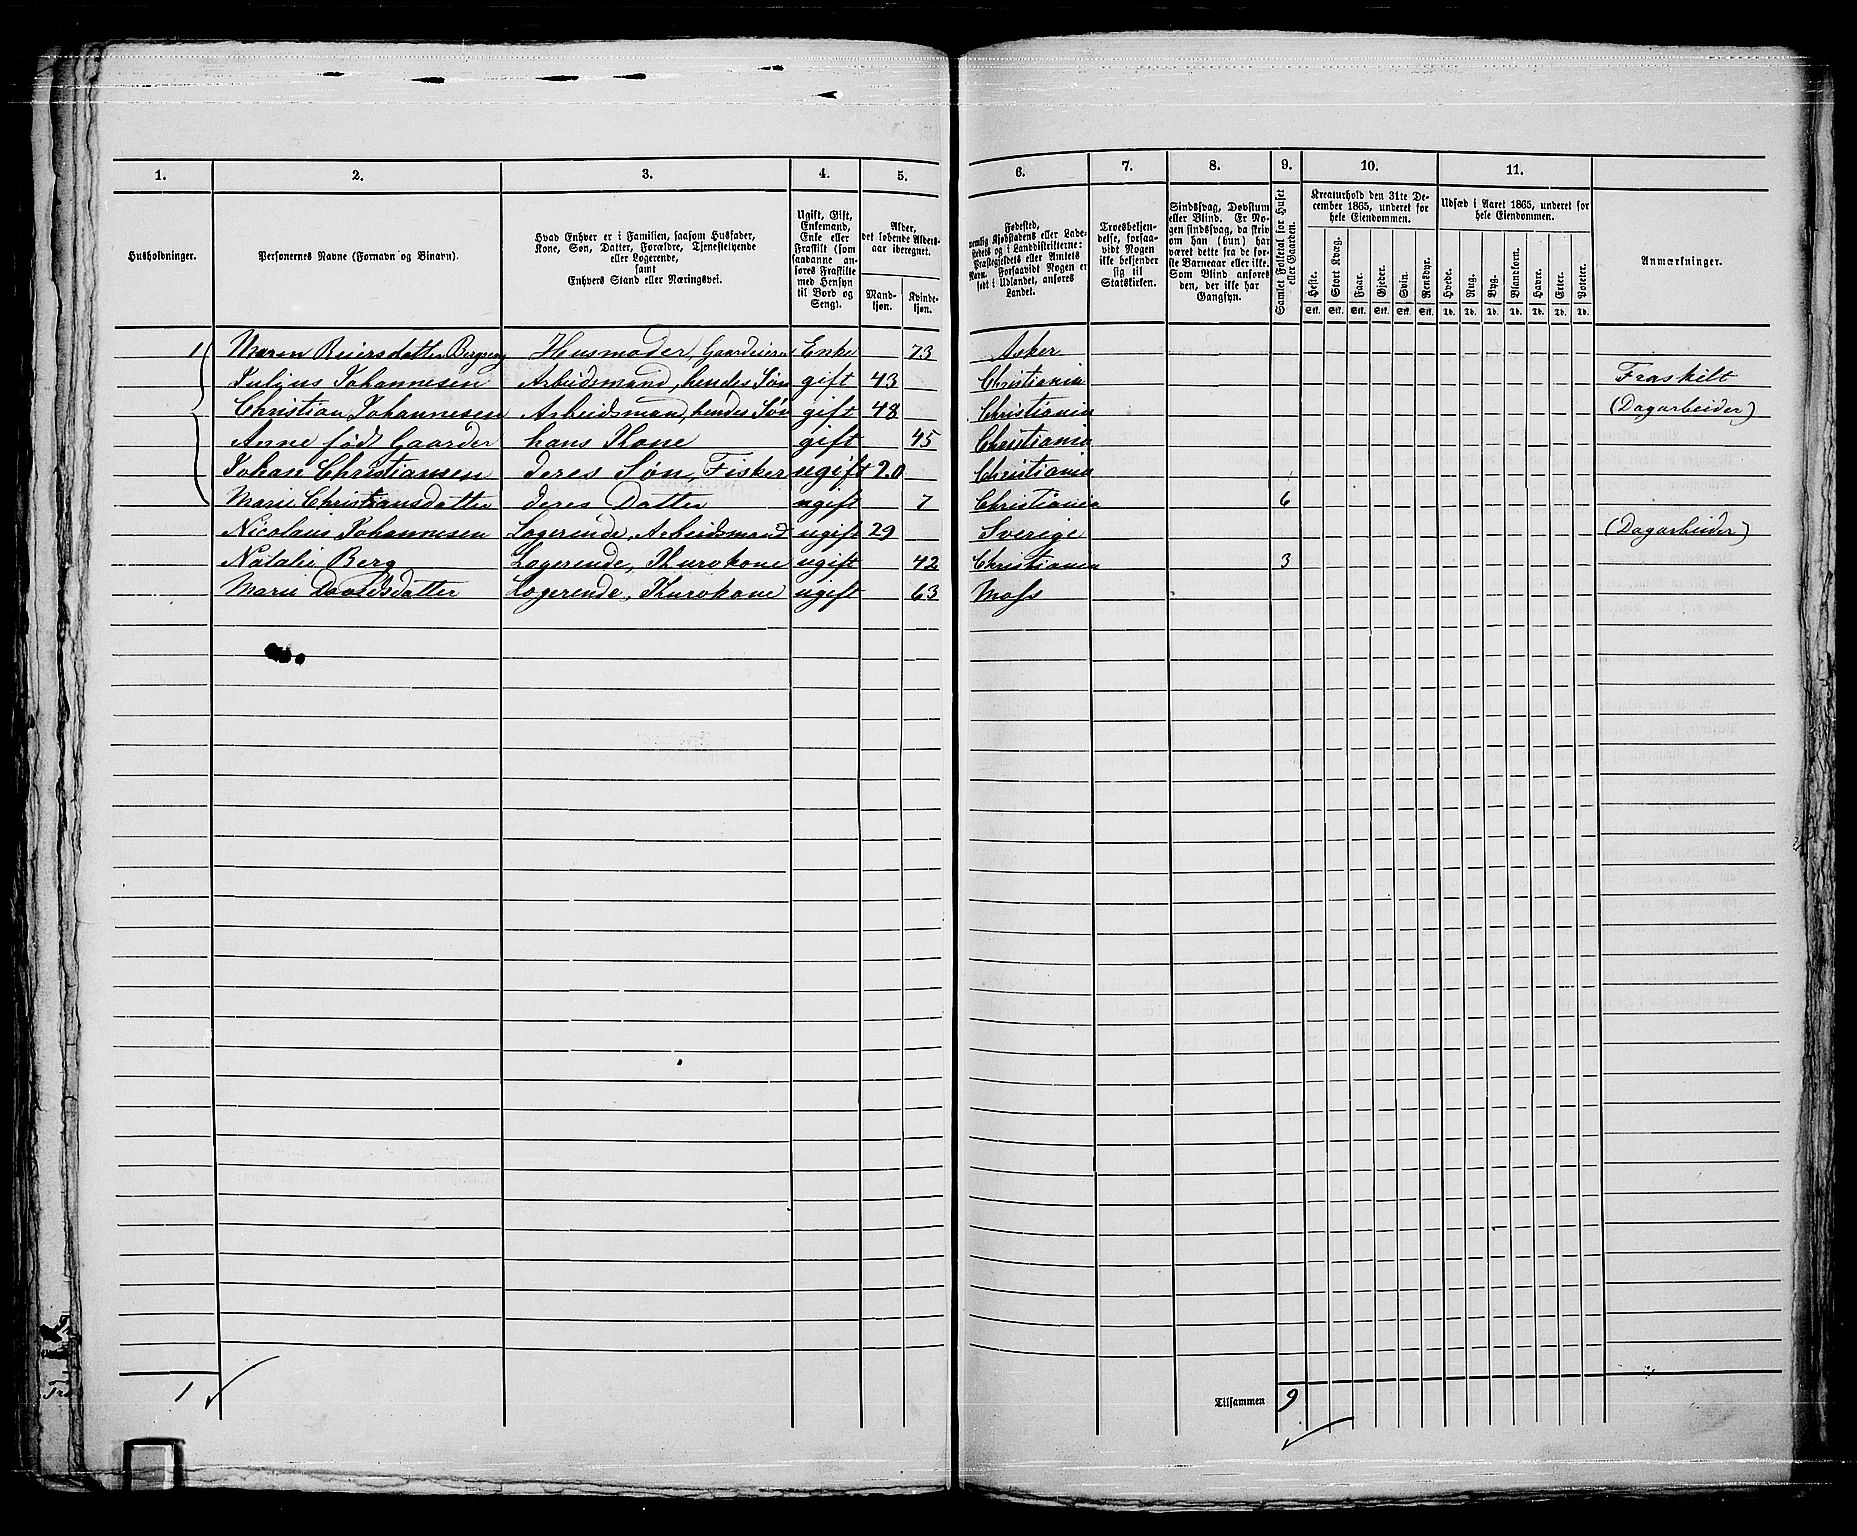 1. 2. 3. 4. 5. 6. 7. 8. 9. 10. 11.
Husholdninger.
Personernes Navne (Fornavn og Binavn).
Hvad Enhver er i Familien, saasom Husfader,
Kone, Søn, Datter, Forældre, Tjenestetyende
eller Logerende,
samt
Enhvers Stand eller Næringsvei.
Ugift, Gift,
Enkemand,
Enke eller
Fraskilt (som
saadanne an-
føres Fraskilte
med Hensyn
til Bord og
Seng).
Alder,
det løbende Alders-
aar iberegnet.
Mand-
kjøn.
Kvinde-
kjøn.
Fødested,
nemlig Kjøbstadens eller Lade-
stedets og i Landdistrikterne:
Præstegjeldets eller Amtets
Navn. Forsaavidt Nogen er
født i Udlandet, anføres
Landet.
Troesbekjen-
delse, forsaa-
vidt Nogen
ikke bekjender
sig til
Statskirken.
Sindssvag, Døvstum
eller Blind. Er No-
gen sindssvag, da skriv
om han (hun) har
været dette fra de før-
ste Barneaar eller ikke.
Som Blind anføres
den, der ikke har
Gangsyn.
Samlet Folketal for Huset
eller Gaarden.
Kreaturhold den 31te De-
cember 1865, underet for
hele Eiendommen.
Heste. Stort Kvæg. Faar. Gjeder. Svin. Rensdyr.
Stk. Stk. Stk. Stk. Stk. Stk.
Udsæd i Aaret 1865, underet for
hele Eiendommen.
Hvede. Rug. Byg. Blandkorn. Havre. Erter. Poteter.
Td. Td. Td. Td. Td. Td. Td.
Anmærkninger.
1 Maren Reiersdatter Husmoder, Enke 73 Asker
Julius Johannesen Arbeidsmand, hendes Søn gift 43 Christiania Fraskilt
Christian Johannesen Arbeidsmand, hendes Søn gift 48 Christiania (Dagarbeider)
Anne født Gaarder hans Kone gift 45 Christiania
Johan Christiansen deres Søn, Fisker ugift 20 Christiania
Marie Christiansdatter deres Datter ugift 7 Christiania 6
Nicolaus Johannesen Logerende, Arbeidsmand ugift 29 Sverige (Dagarbeider)
Natalie Berg Logerende, Kurvkone ugift 42 Christiania 3
Marie Davidsdatter Logerende, Kurvkone ugift 63 Moss
1
Tilsammen 9